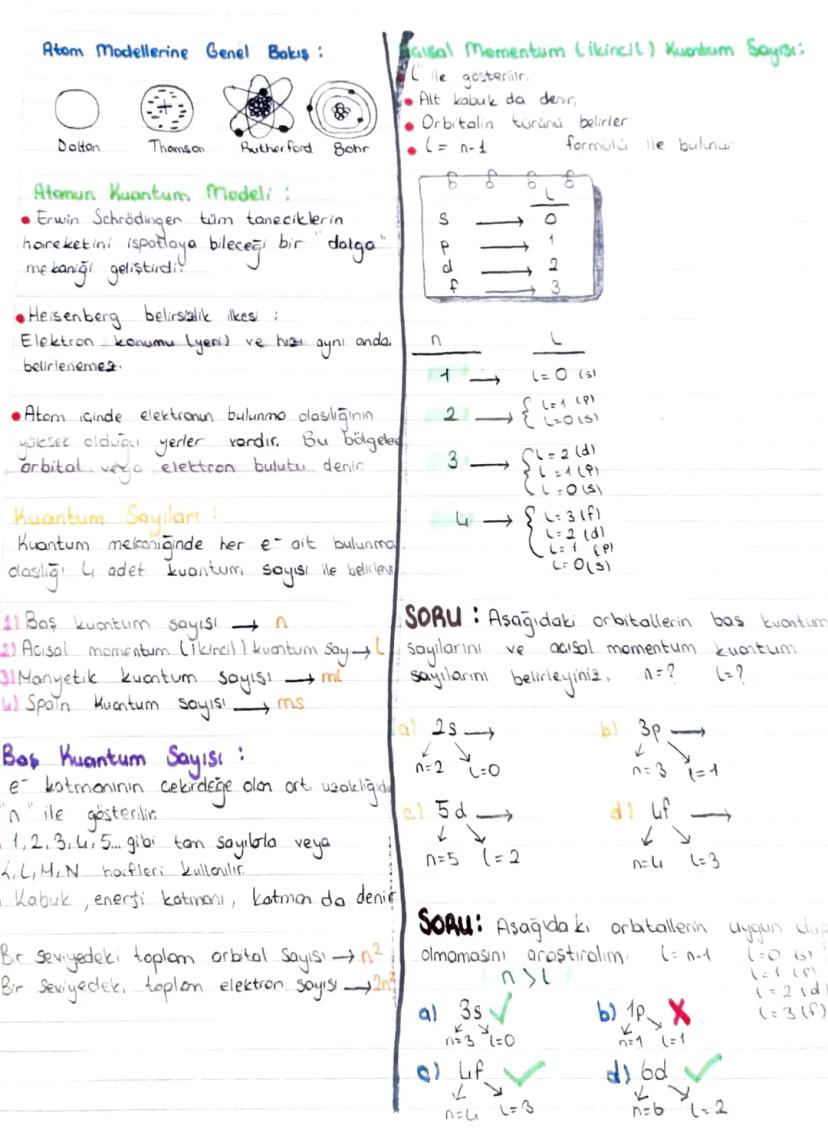 Atom Modellerine Genel Bakış :
Dalton Thomson Rutherford Bohr
Atomun Kuantum Modeli :
• Erwin Schrödinger tüm taneciklerin
hareketini ispatlaya bileceği bir "dalga"
mekaniği geliştirdi.
• Heisenberg belirsizlik ilkesi :
Elektron konumu (yeri) ve hızı aynı anda
belirlenemez.
• Atom içinde elektronun bulunma olasılığının
yüksek olduğu yerler vardır. Bu bölgelere
orbital veya elektron bulutu denir.
Kuantum Sayıları :
Kuantum mekaniğinde her e⁻ ait bulunma
olasılığı 4 adet kuantum sayısı ile belirlenir
1) Baş kuantum sayısı → n
2) Acısal momentum (ikincil) kuantum say → l
3) Manyetik kuantum sayısı → ml
4) Spain kuantum sayısı → ms
Baş Kuantum Sayısı :
e⁻ katmanının çekirdeğe olan ort. uzaklığıdı
"n" ile gösterilir.
1,2,3,4,5... gibi tam sayılarla veya
K, L, M, N harfleri kullanılır.
Kabuk, enerji katmanı, katman da denir
Bir seviyedeki toplam orbital sayısı → n²
Bir seviyedeki toplam elektron sayısı → 2n²
Açısal Momentum (ikincil) Kuantum Sayısı:
"L" ile gösterilir.
• Alt kabuk da denir.
• Orbitalin türünü belirler
• l = n-1 formülü ile bulunur
L
s → 0
p → 1
d → 2
f → 3
n L
1 → l=0 (s)
2 → { l=1 (p)
l=0 (s)
3 → { l=2 (d)
l=1 (p)
l=0 (s)
4 → { l=3 (f)
l=2 (d)
l=1 (p)
l=0 (s)
SORU : Aşağıdaki orbitallerin baş kuantum
sayılarını ve acısal momentum kuantum
sayılarını belirleyiniz. n=? l=?
a) 2s → b) 3p →
n=2 l=0 n=3 l=1
c) 5d → d) 4f →
n=5 l=2 n=4 l=3
SORU: Aşağıdaki orbitallerin uygun olup
olmamasını araştıralım. l=n-1 l=0 (s)
n>l l=1 (p)
l=2 (d)
l=3 (f)
a) 3s ✓ b) 1p ✗
n=3 l=0 n=1 l=1
c) 4f ✓ d) 6d ✓
n=4 l=3 n=6 l=2